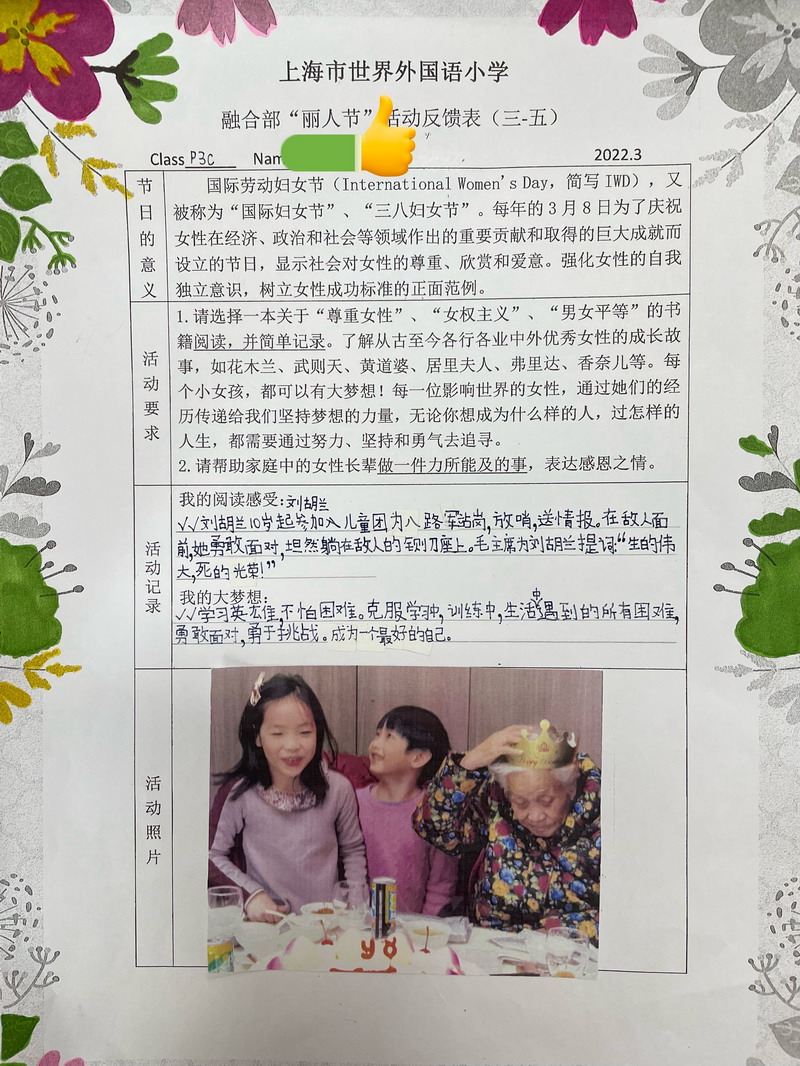 上海市世界外国语小学
融合部“丽人节”活动反馈表（三-五）
Class P3c Nam 2022.3
节日的意义
国际劳动妇女节（International Women's Day，简写 IWD），又
被称为“国际妇女节”、“三八妇女节”。每年的 3 月 8 日为了庆祝
女性在经济、政治和社会等领域作出的重要贡献和取得的巨大成就而
设立的节日，显示社会对女性的尊重、欣赏和爱意。强化女性的自我
独立意识，树立女性成功标准的正面范例。
活动要求
1.请选择一本关于“尊重女性”、“女权主义”、“男女平等”的书
籍阅读，并简单记录。了解从古至今各行各业中外优秀女性的成长故
事，如花木兰、武则天、黄道婆、居里夫人、弗里达、香奈儿等。每
个小女孩，都可以有大梦想！每一位影响世界的女性，通过她们的经
历传递给我们坚持梦想的力量，无论你想成为什么样的人，过怎样的
人生，都需要通过努力、坚持和勇气去追寻。
2.请帮助家庭中的女性长辈做一件力所能及的事，表达感恩之情。
活动记录
我的阅读感受：刘胡兰
√√刘胡兰10岁起参加入儿童团为八路军站岗，放哨，送情报。在敌人面
前，她勇敢面对，坦然躺在敌人的铡刀座上。毛主席为刘胡兰提词：“生的伟
大，死的光荣！”
我的大梦想：
√√学习英宏佳，不怕困难。克服学种，训练中，生活中遇到的所有困难，
勇敢面对，勇于挑战。成为一个最好的自己。
活动照片
98